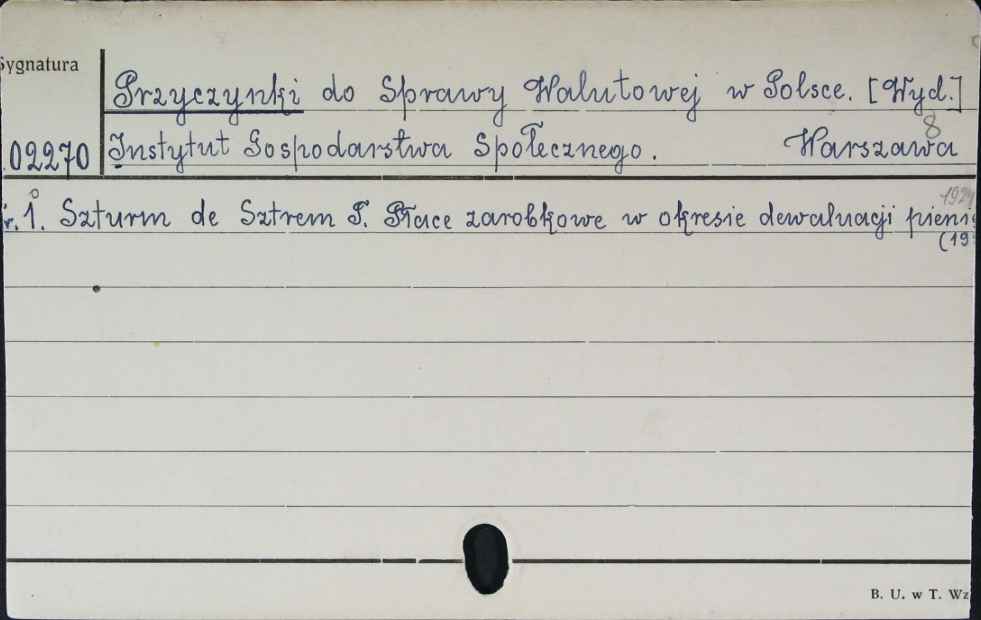 Sygnatura
Przyczynki do Sprawy Walutowej w Polsce. [Wyd.]
8
02270 Instytut Gospodarstwa Społecznego. Warszawa
1924
r. 1. Szturm de Sztrem T. Płace zarobkowe w okresie dewaluacji pienię
(19
B. U. w T. Wz